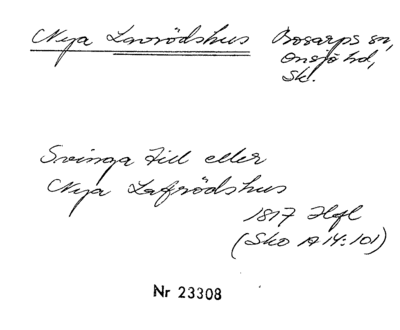 Nya Lavrödshus Bosarps sn,
Onsjö hd,
Sk.
Svinga Till eller
Nya Lafrödshus
1817 Hfl
(Sko A I4:101)
Nr 23308